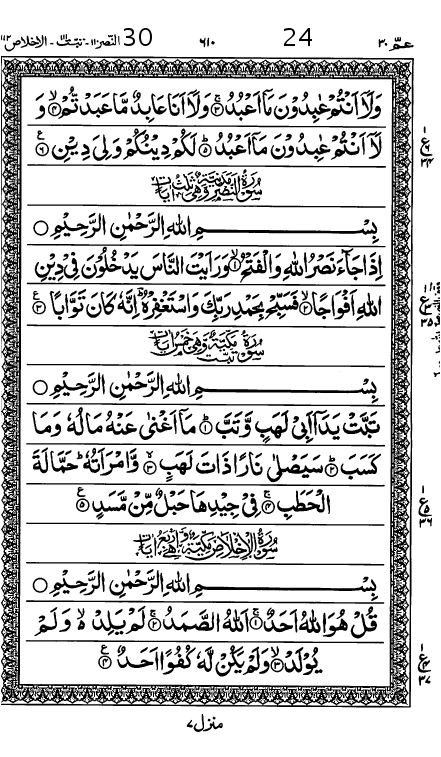 عمّ ٣٠ 24 ٦١٠ 30 النصر ١١٠ - تبّت ١١١ - الاخلاص ١١٢
وَلَاۤ اَنْتُمْ عٰبِدُوْنَ مَاۤ اَعْبُدُ ۚ﴿۳﴾ وَلَاۤ اَنَا عَابِدٌ مَّا عَبَدْتُّمْ ۙ﴿۴﴾ وَ
لَاۤ اَنْتُمْ عٰبِدُوْنَ مَاۤ اَعْبُدُ ؕ﴿۵﴾ لَكُمْ دِيْنُكُمْ وَلِيَ دِيْنِ ﴿۶﴾ ع
٣٤
سُوْرَةُ النَّصْرِ مَدَنِيَّةٌ وَّهِيَ ثَلٰثُ اٰيَاتٍ
بِسْمِ اللهِ الرَّحْمٰنِ الرَّحِيْمِ ○
اِذَا جَآءَ نَصْرُ اللهِ وَالْفَتْحُ ۙ﴿۱﴾ وَرَاَيْتَ النَّاسَ يَدْخُلُوْنَ فِيْ دِيْنِ
اللهِ اَفْوَاجًا ۙ﴿۲﴾ فَسَبِّحْ بِحَمْدِ رَبِّكَ وَاسْتَغْفِرْهُ ؕ اِنَّهٗ كَانَ تَوَّابًا ﴿۳﴾ ع
٣٥
سُوْرَةُ تَبَّتْ مَكِّيَّةٌ وَّهِيَ خَمْسُ اٰيَاتٍ
بِسْمِ اللهِ الرَّحْمٰنِ الرَّحِيْمِ ○
تَبَّتْ يَدَاۤ اَبِيْ لَهَبٍ وَّتَبَّ ؕ﴿۱﴾ مَاۤ اَغْنٰى عَنْهُ مَالُهٗ وَمَا
كَسَبَ ؕ﴿۲﴾ سَيَصْلٰى نَارًا ذَاتَ لَهَبٍ ۚۖ﴿۳﴾ وَّامْرَاَتُهٗ ؕ حَمَّالَةَ
الْحَطَبِ ۚ﴿۴﴾ فِيْ جِيْدِهَا حَبْلٌ مِّنْ مَّسَدٍ ﴿۵﴾ ع
٣٦
سُوْرَةُ الْاِخْلَاصِ مَكِّيَّةٌ وَّهِيَ اَرْبَعُ اٰيَاتٍ
بِسْمِ اللهِ الرَّحْمٰنِ الرَّحِيْمِ ○
قُلْ هُوَ اللهُ اَحَدٌ ۚ﴿۱﴾ اَللهُ الصَّمَدُ ۚ﴿۲﴾ لَمْ يَلِدْ ۙ۬ وَلَمْ
يُوْلَدْ ۙ﴿۳﴾ وَلَمْ يَكُنْ لَّهٗ كُفُوًا اَحَدٌ ﴿۴﴾ ع
٣٧
منزل ٧